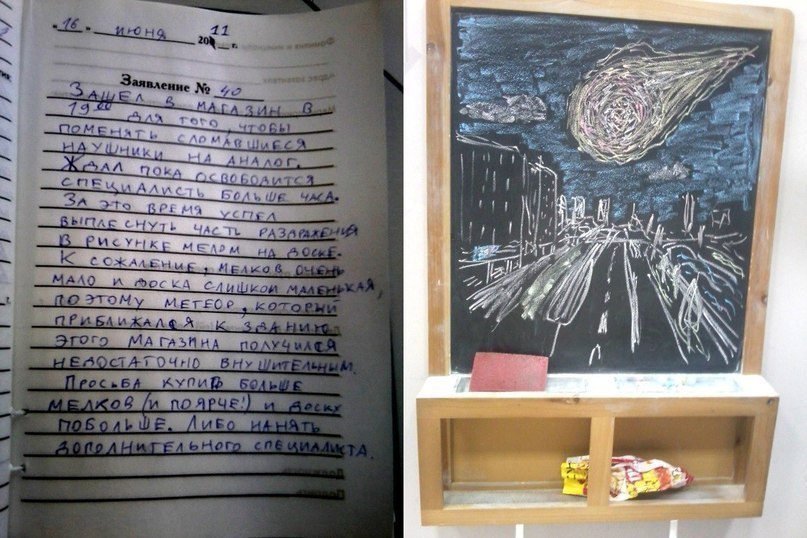 "16" июня 2011 г.
Заявление № 40
Зашел в магазин в
19⁰⁰ для того, чтобы
поменять сломавшиеся
наушники на аналог.
Ждал пока освободится
специалисть больше часа.
За это время успел
выплеснуть часть раздражения
в рисунке мелом на доске.
К сожаление, мелков очень
мало и доска слишком маленькая,
поэтому метеор, который
приближался к зданию
этого магазина получился
недостаточно внушительным.
Просьба купить больше
мелков (и поярче!) и доску
побольше. Либо нанять
дополнительного специалиста.